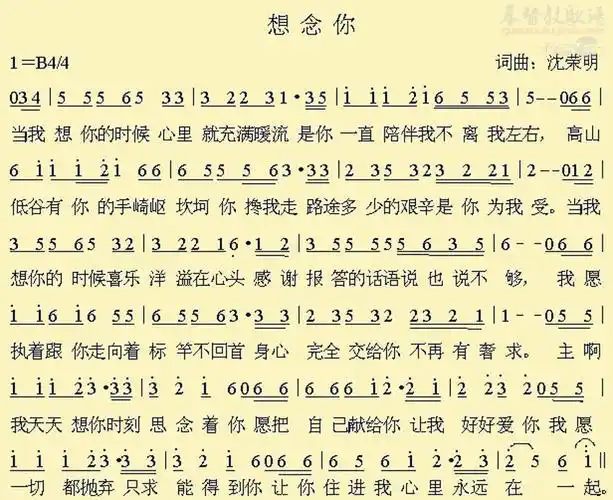 基督教歌谱
想念你
1=B4/4 词曲：沈荣明
034 | 5 55 65 33 | 3 22 31·35 | i ii 2i6 553 | 5--066 |
当我 想 你的时候 心里 就充满暖流 是你 一直 陪伴我不 离 我左右，高山
6 ii i2i 66 | 6 55 5 63·33 | 2 35 323 2 21 | 2--012 |
低谷有 你 的手崎岖 坎坷 你 搀我走 路途多 少的艰辛是 你 为我 受。当我
3 55 65 32 | 3 22 16·12 | 3 55 55 5 6 3 5 | 6--066 |
想你的 时候喜乐 洋 溢在心头 感 谢 报 答的话语说 也 说不 够， 我 愿
i i6 i6 55 | 6 55 63·33 | 2 35 32 23 2 1 | 1--055 |
执着跟 你走向着 标 竿不回首 身心 完全 交给你 不再 有 奢求。 主 啊
i ii i23·33 | 3 2 i 6066 | 6 66 i2·2i | 2 23 2055 |
我天天 想你时刻 思 念 着 你 愿把 自己献给你 让我 好好爱 你 我 愿
i ii i23·33 | 3 2 i 6066 | 6 56 5 6i 2·23 | 2 5 6 i ||
一切 都抛弃 只求 能 得 到 你 让 你 住 进 我 心 里 永远 在 一 起